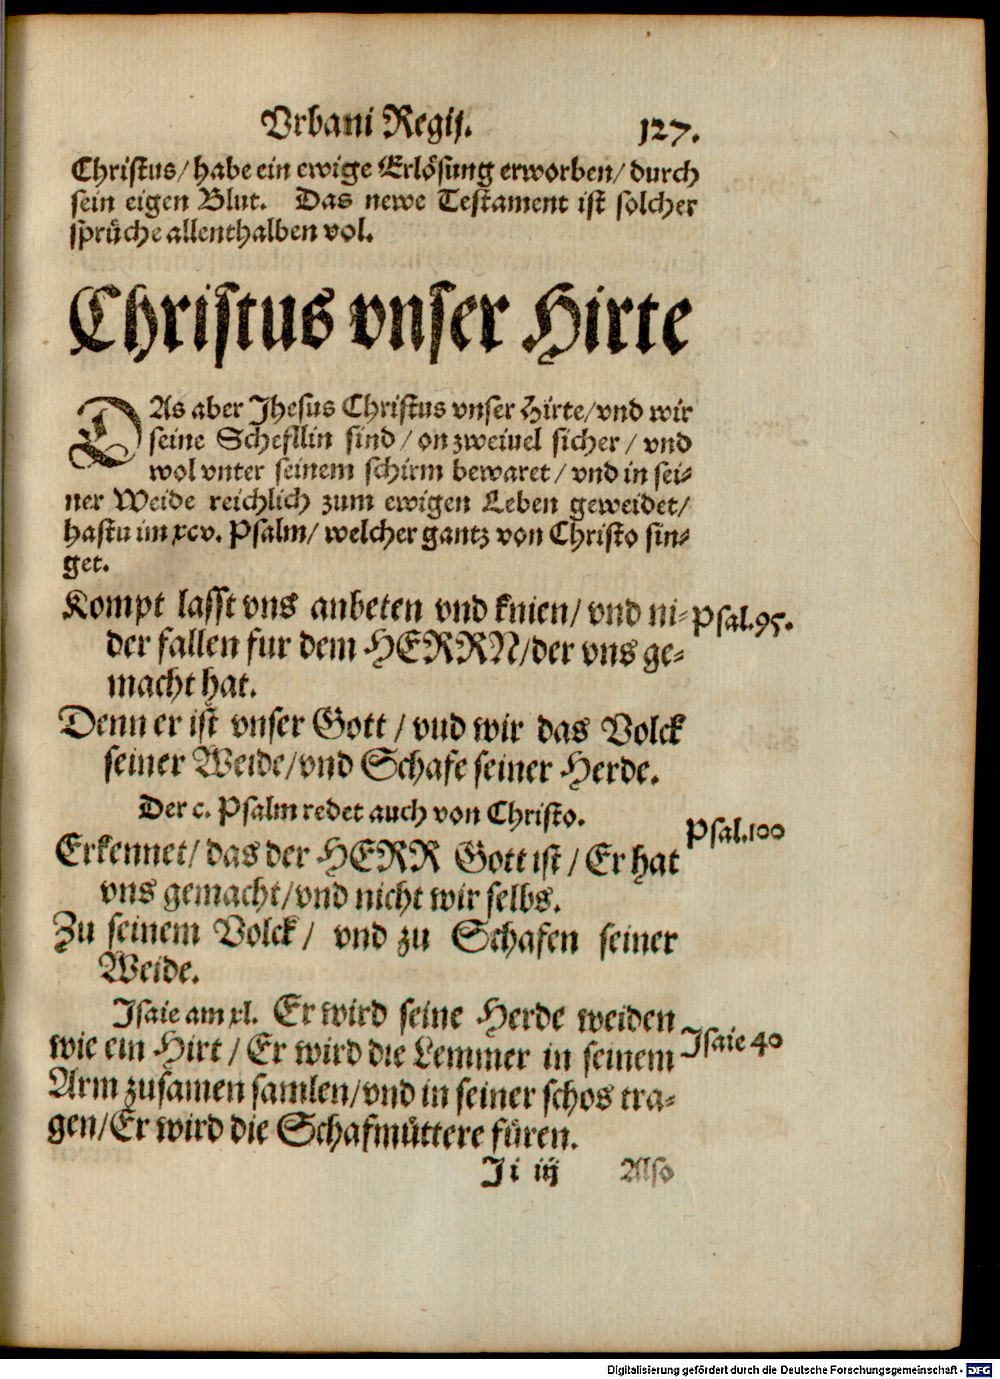 Vrbani Regij. 127.
Christus/ habe ein ewige Erlösung erworben/ durch
sein eigen Blut. Das newe Testament ist solcher
sprüche allenthalben vol.
Christus vnser Hirte
DAs aber Jhesus Christus vnser Hirte/ vnd wir
seine Schefllin sind/ on zweiuel sicher/ vnd
wol vnter seinem schirm bewaret/ vnd in sei-
ner Weide reichlich zum ewigen Leben geweidet/
hastu im xcv. Psalm/ welcher gantz von Christo sin-
get.
Kompt lasst vns anbeten vnd knien/ vnd ni- Psal. 95.
der fallen fur dem HERRN/ der vns ge-
macht hat.
Denn er ist vnser Gott/ vnd wir das Volck
seiner Weide/ vnd Schafe seiner Herde.
Der c. Psalm redet auch von Christo.
Psal. 100
Erkennet/ das der HERR Gott ist/ Er hat
vns gemacht/ vnd nicht wir selbs.
Zu seinem Volck/ vnd zu Schafen seiner
Weide.
Isaie am xl. Er wird seine Herde weiden
wie ein Hirt/ Er wird die Lemmer in seinem Isaie 40
Arm zusamen samlen/ vnd in seiner schos tra-
gen/ Er wird die Schafmüttere füren.
Ji iij Also
Digitalisierung gefördert durch die Deutsche Forschungsgemeinschaft - DFG